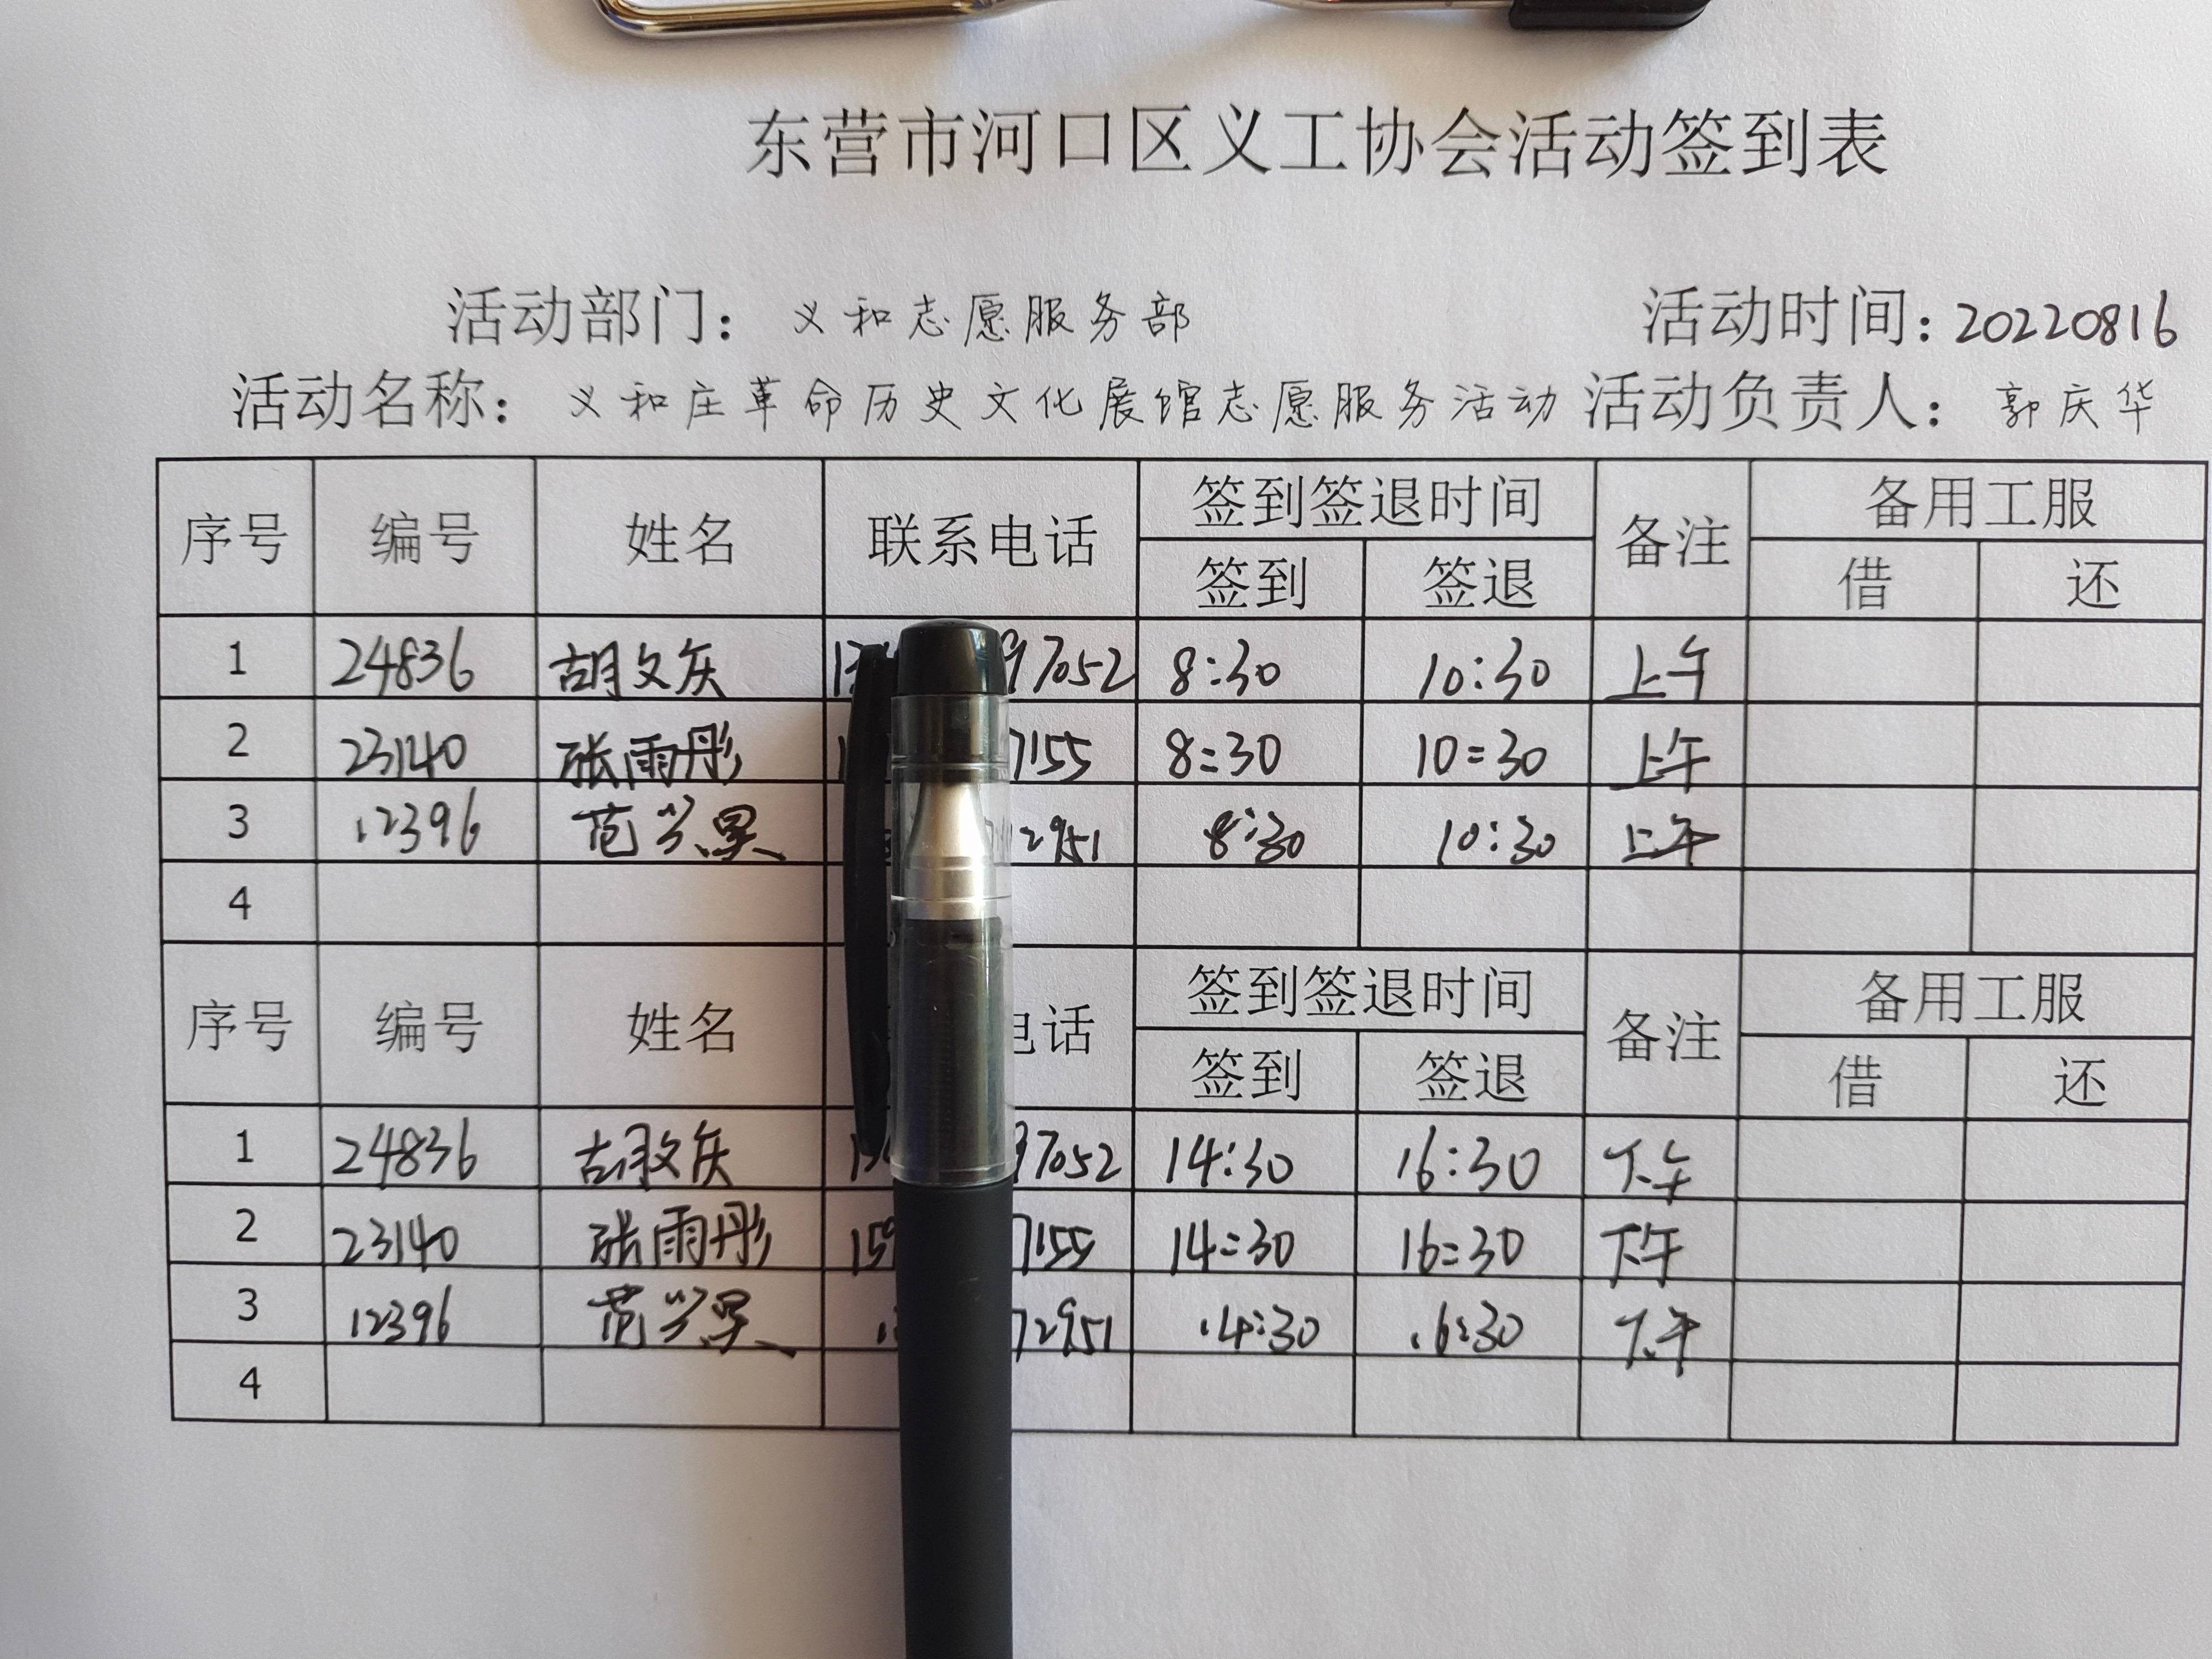 东营市河口区义工协会活动签到表
活动部门： 义和志愿服务部 活动时间：20220816
活动名称： 义和庄革命历史文化展馆志愿服务活动 活动负责人： 郭庆华
序号 编号 姓名 联系电话 签到签退时间 备注 备用工服
签到 签退 借 还
1 24836 胡文庆 97052 8:30 10:30 上午
2 23140 张雨彤 7155 8:30 10:30 上午
3 12396 范兴果 2951 8:30 10:30 上午
4
序号 编号 姓名 电话 签到签退时间 备注 备用工服
签到 签退 借 还
1 24836 胡文庆 97052 14:30 16:30 下午
2 23140 张雨彤 159 7155 14:30 16:30 下午
3 12396 范兴果 72951 14:30 16:30 下午
4